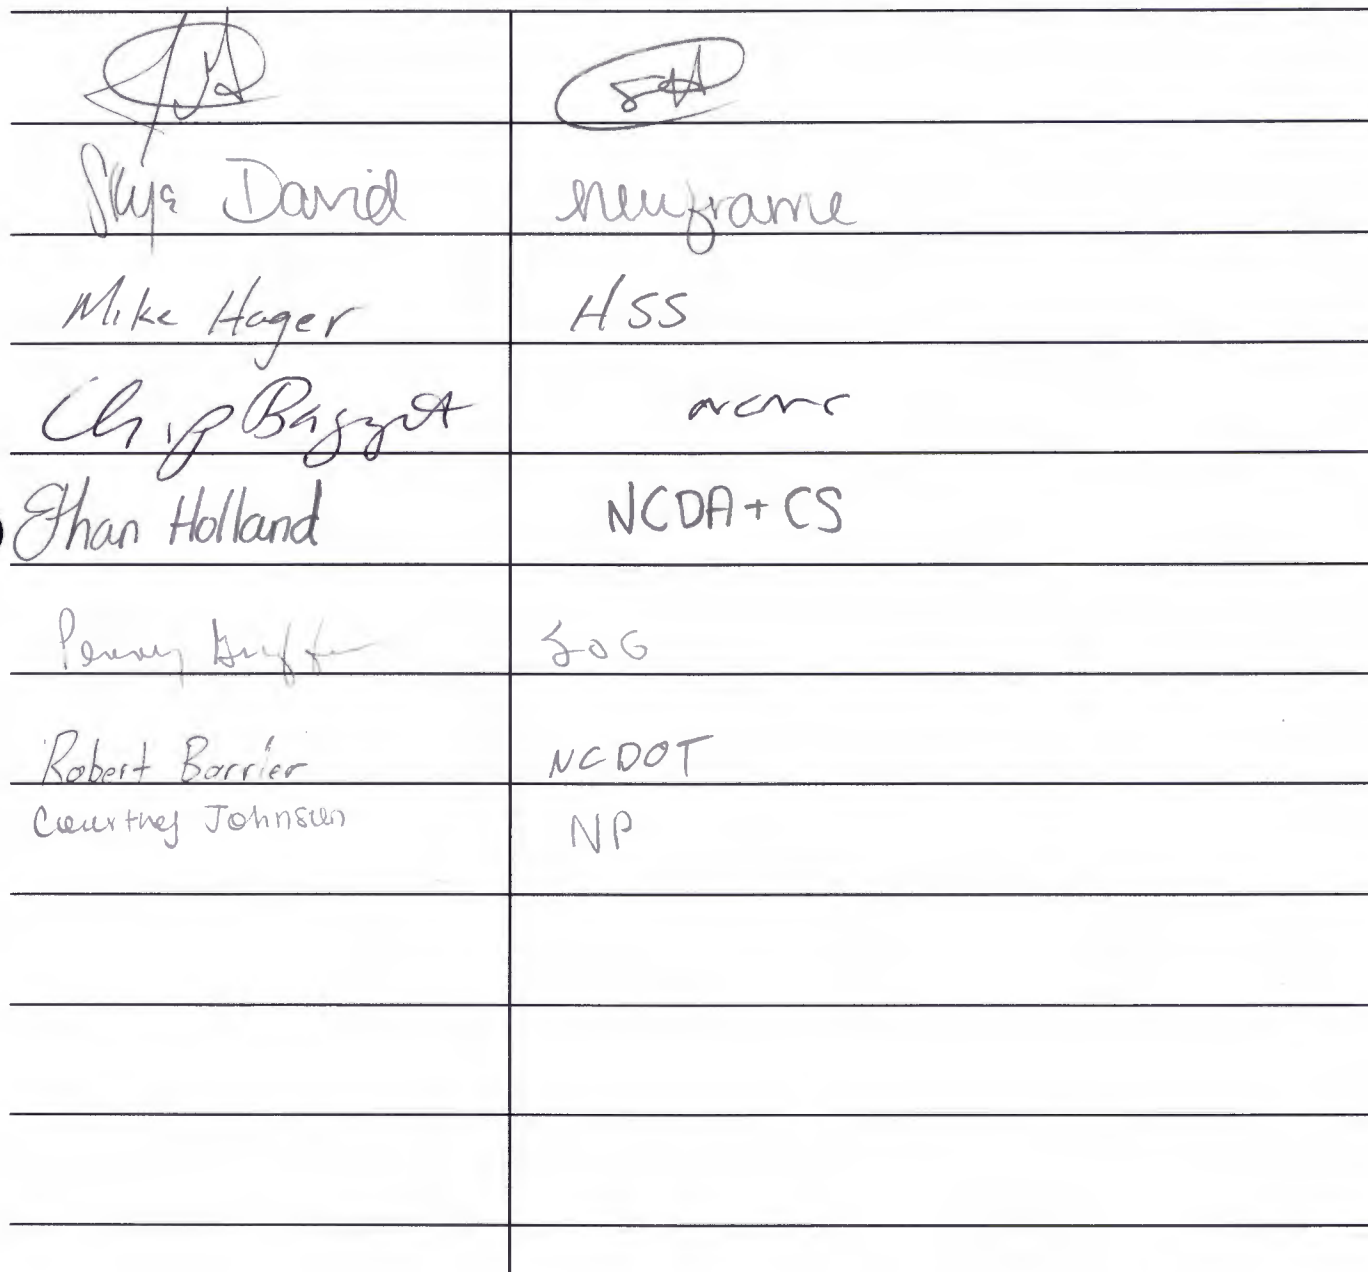 Skye David newframe
Mike Hager HSS
Chip Baggett NCMS
Ethan Holland NCDA+CS
Penny Griffin SOG
Robert Barrier NCDOT
Courtney Johnson NP